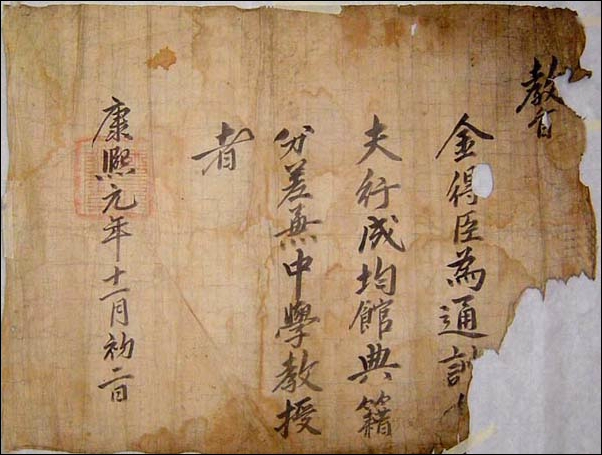 教旨
金得臣為通訓
夫行成均館典籍
分差兼中學教授
者
康熙元年十一月初二日